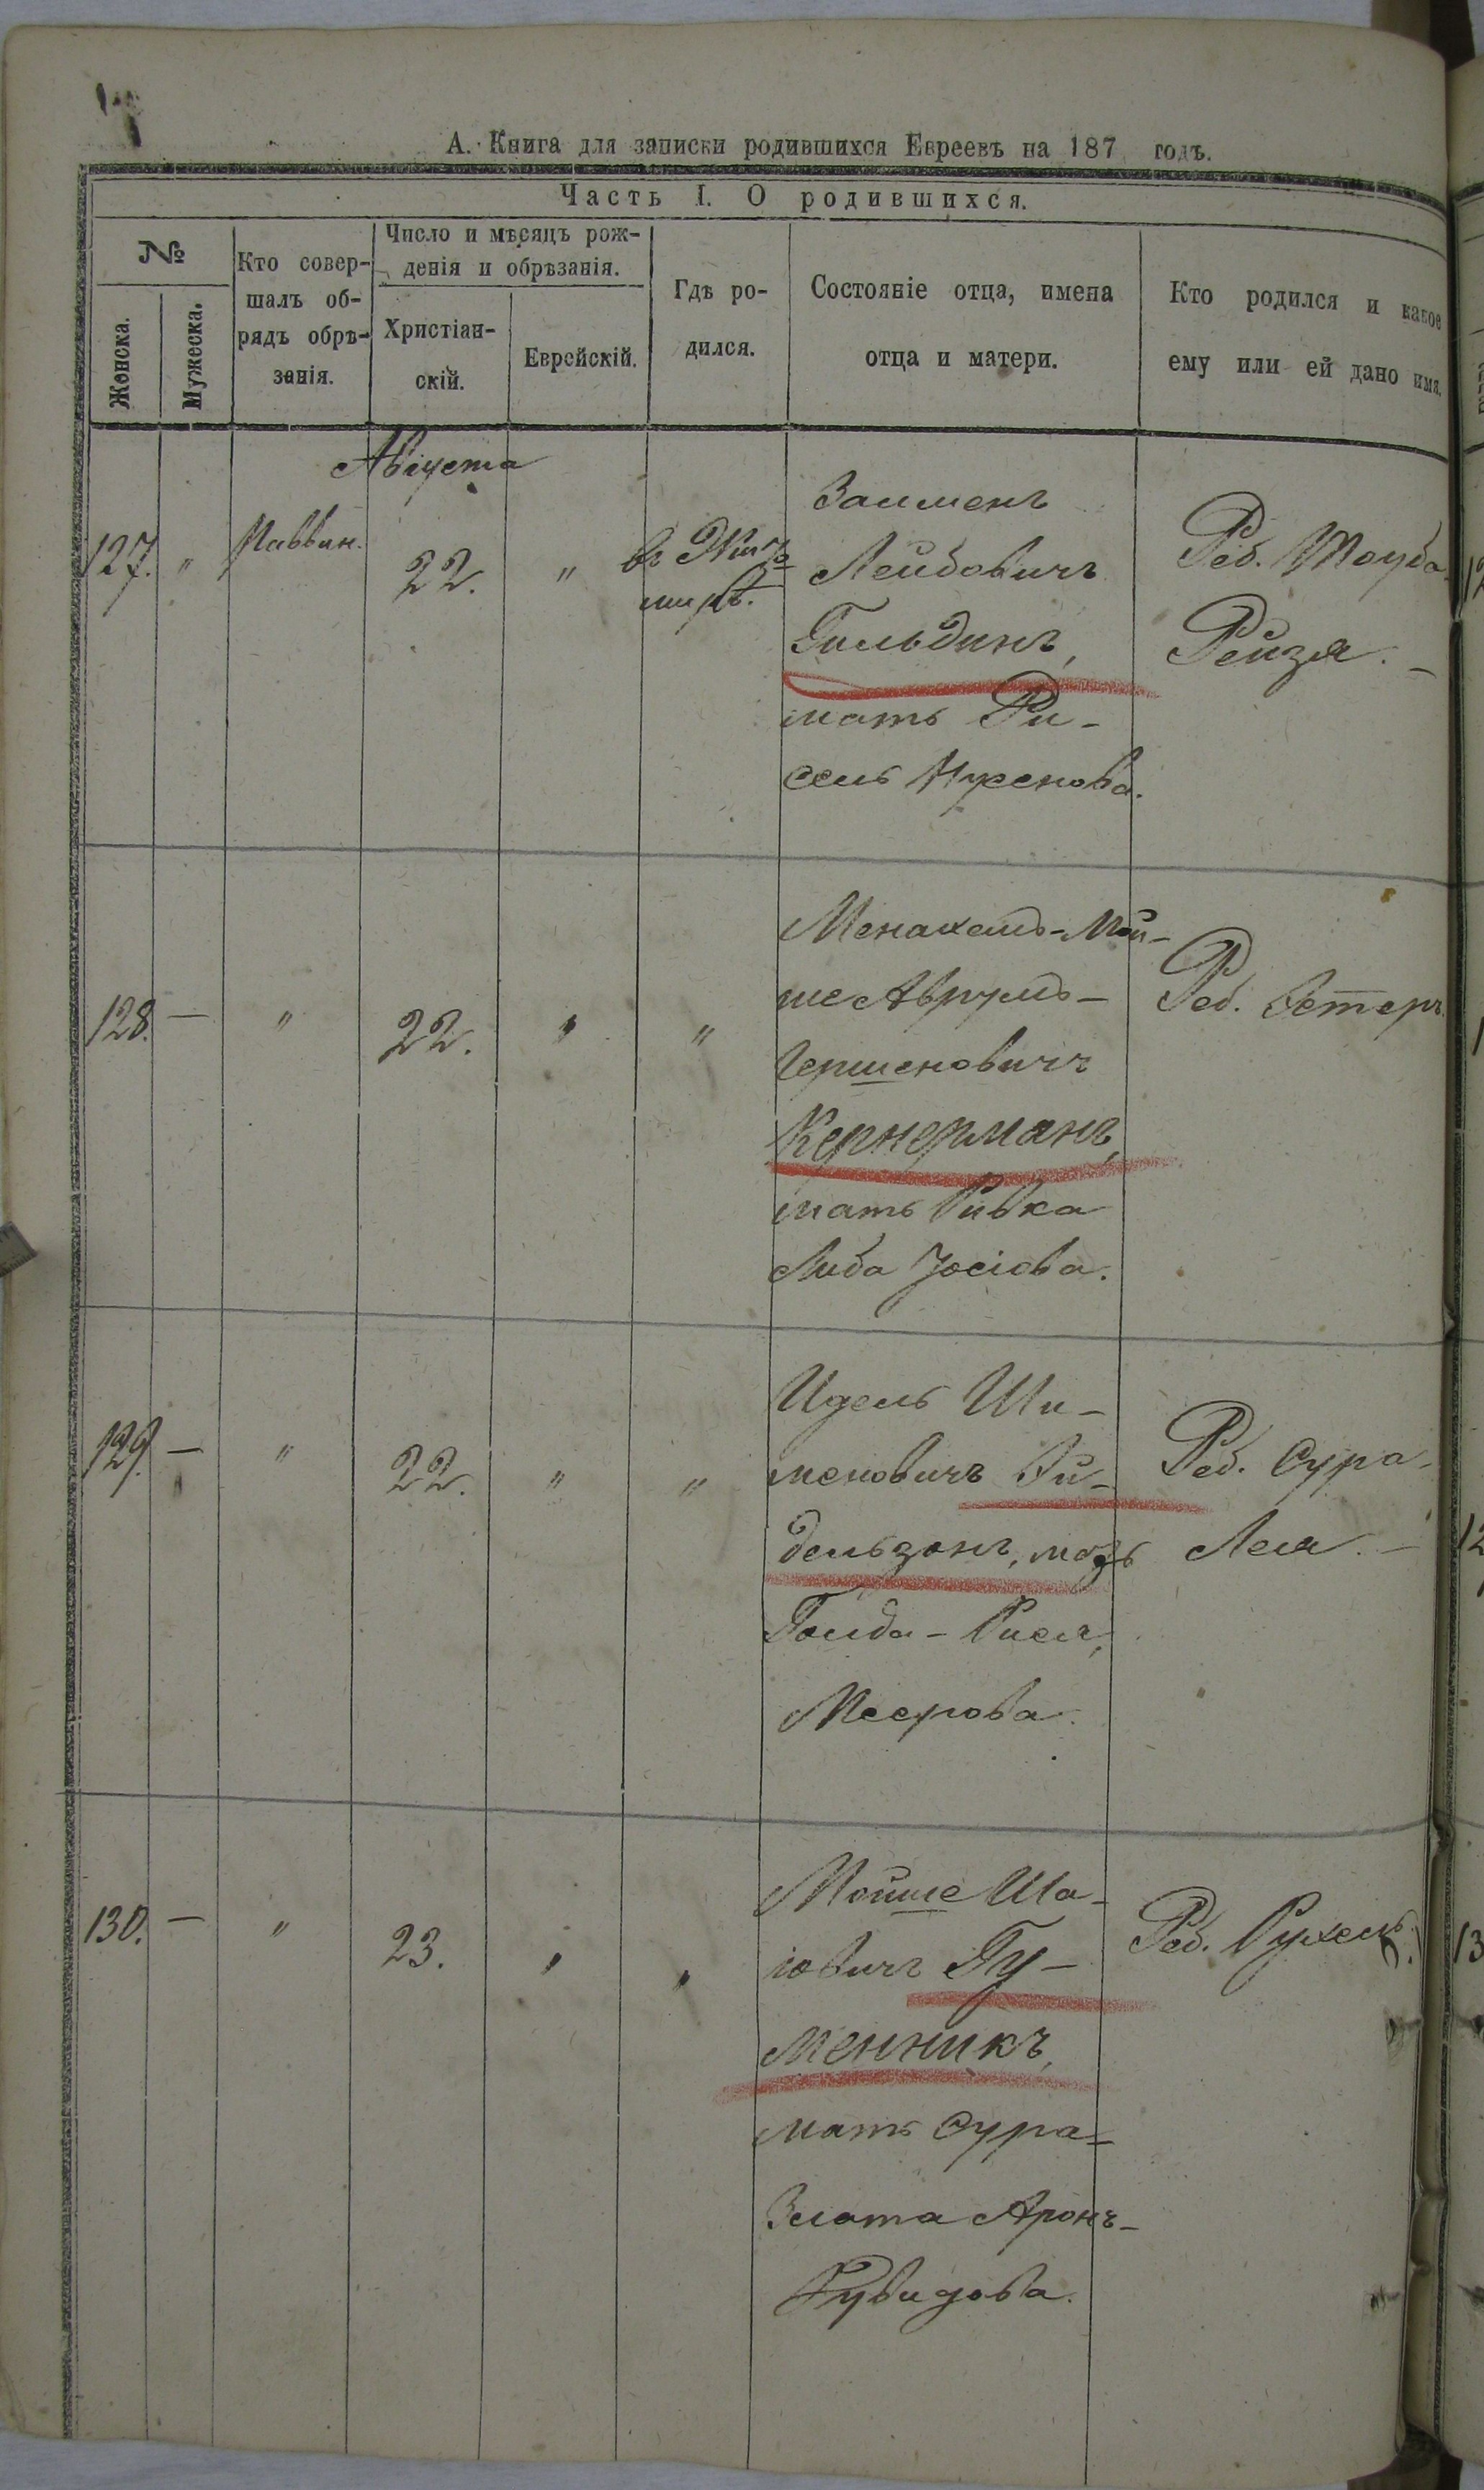 А. Книга для записки родившихся Евреевъ на 187 годъ.
Часть I. О родившихся.
№
Женска.
Мужеска.
Кто совер-
шалъ об-
рядъ обрѣ-
занія.
Число и мѣсяцъ рож-
денія и обрѣзанія.
Христіан-
скій.
Еврейскій.
Гдѣ ро-
дился.
Состояніе отца, имена
отца и матери.
Кто родился и какое
ему или ей дано имя.
Августа
127. " Раввин. 22. " въ Жито
мирѣ.
Залменъ
Лейбовичъ
Гильдинъ,
мать Ри-
сель Нусенова.
Реб. Тоуба
Рейзя. -
128. - " 22. " "
Менахемъ-Мой-
ше Аврумъ-
Гершеновичъ
Кернерманъ,
мать Ривка
Либа Іосіова.
Реб. Эстеръ.
129. - " 22. " "
Идель Ши-
меновичъ Эй-
дельзонъ, мать
Голда-Рися,
Меерова.
Реб. Сура-
Лея. -
130. - " 23. " "
Мойше Ша-
іовичъ Гу-
менникъ,
мать Сура-
Злата Аронъ-
Дувидова.
Реб. Рухель.